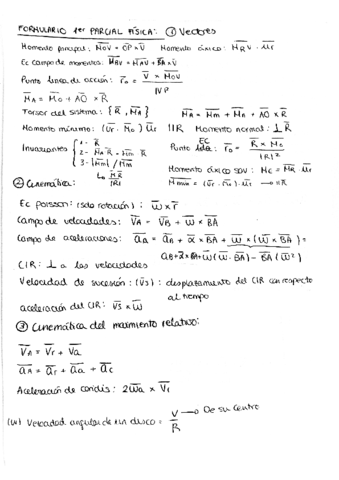 FORMULARIO 1er PARCIAL FÍSICA: ① Vectores
Momento principal: MOV = OP x V Momento áxico: MRV · Ur
Ec campo de momentos: MBV = MAV + BA x V
Punto línea de acción: r0 = V x MOV / |V|²
MA = MO + AO x R
Torsor del sistema: {R, MA} MA = Mm + MA + AO x R
Momento mínimo: (Ur · MO) Ur || R Momento normal: ⊥ R
Invariantes { 1- R
2- MA · R = Mm · R
3- |Mm| / Mm
↳ M·R / |R|
Punto EC idea: r0 = R x MO / |R|²
Momento áxico SDV: ME = MR · Ur
Mmin = (Ur · MO) · Ur → || R
② Cinemática:
Ec poisson: (sólo rotación): w x r
Campo de velocidades: VA = VB + w x BA
Campo de aceleraciones: aA = aB + α x BA + w x (w x BA) =
aB + α x BA + w (w · BA) - BA (w²)
CIR: ⊥ a las velocidades
Velocidad de sucesión: (VS): desplazamiento del CIR con respecto
al tiempo
aceleración del CIR: VS x w
③ Cinemática del movimiento relativo:
VA = Vr + Va
aA = ar + aa + ac
Aceleración de coriolis: 2wa x Vr
(w) Velocidad angular de un disco = V → De su centro
R